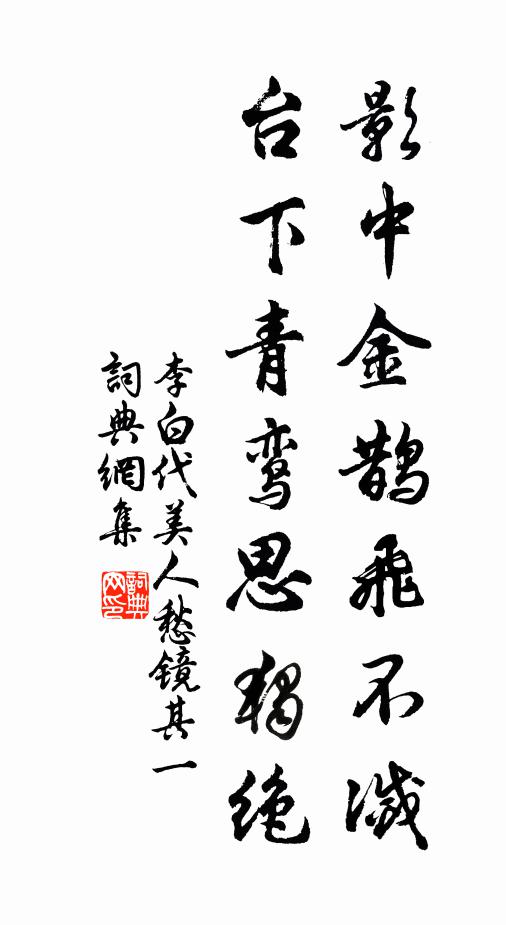 影中金鹊飞不滅
台下青鸾思独絶
李白代美人愁鏡其一
詞典網集
詞典網印